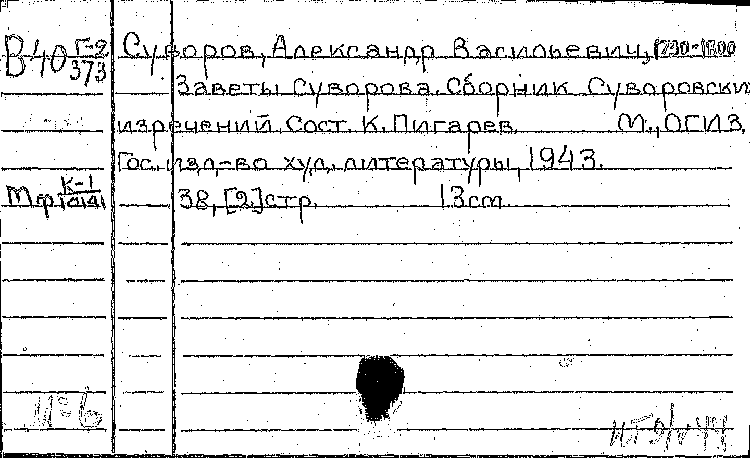 В 40 Г-2/373 Суворов, Александр Васильевич, 1730-1800
Заветы Суворова. Сборник Суворовски
изречений. Сост. К. Пигарев. М., ОГИЗ,
Гос. изд-во худ. литературы, 1943.
Мф К-1 38, [2] стр. 13 cm